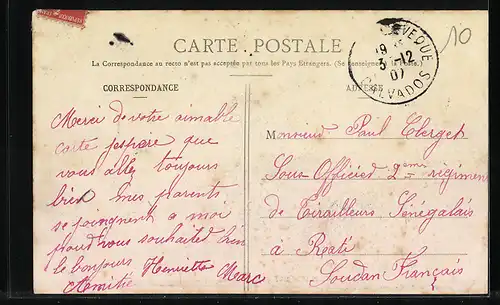 CARTE POSTALE
La Correspondance au recto n'est pas acceptée par tous les Pays Etrangers. (Se renseigner à la Poste.)
CORRESPONDANCE
Merci de votre aimable
carte j'espère que
vous allez toujours
bien mes parents
se joingnent a moi
pour vous souhaited bien
le bonjours Henriette Marc
Amitié
ADRESSE
Monsieur Paul Clerget
Sous Officied 2ème régimen
de Tirailleurs Sénégalais
à Kati
Soudan Français
EVEQUE
19
3-12
07
CALVADOS
10